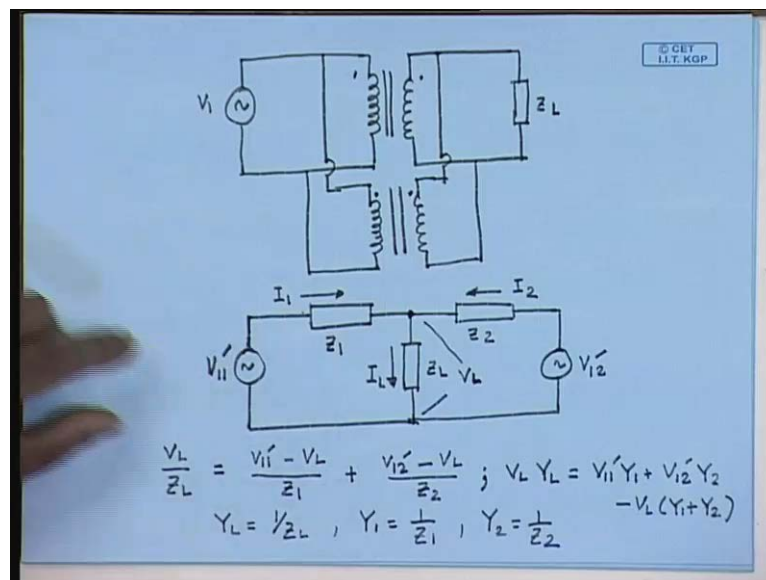 © CET
I.I.T. KGP
V1
ZL
I1
I2
Z1
Z2
V11′
IL
ZL
VL
V12′
VL/ZL = (V11′ - VL)/Z1 + (V12′ - VL)/Z2 ; VL YL = V11′Y1 + V12′Y2
- VL (Y1+Y2)
YL = 1/ZL , Y1 = 1/Z1 , Y2 = 1/Z2